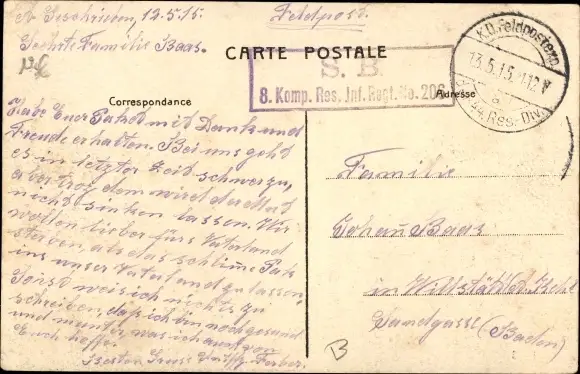 Geschrieben, 12.5.15.
Feldpost.
Geehrte Familie Baas.
CARTE POSTALE
S. B.
8. Komp. Res. Inf. Regt. No. 206
K.D. Feldpostexp.
13.5.15.
44. Res.-Div.
Correspondance
Adresse
Habe Euer Paket mit Dank und
Freude erhalten. Bei uns geht
es in letzter Zeit schwer zu,
aber trozdem wird der Mut
nicht sinken lassen. Wir
wollen lieber fürs Vaterland
sterben, als das schlime Pak
ins unser Vaterland zu lassen,
Sonst weis ich nichts zu
schreiben, daß ich bin noch gesund
und munter, was ich auch von
Euch hoffe.
Besten Gruss Ferber.
Familie
Johan Baas
in Willstätt b. Kehl
Sandgasse (Baden)
B